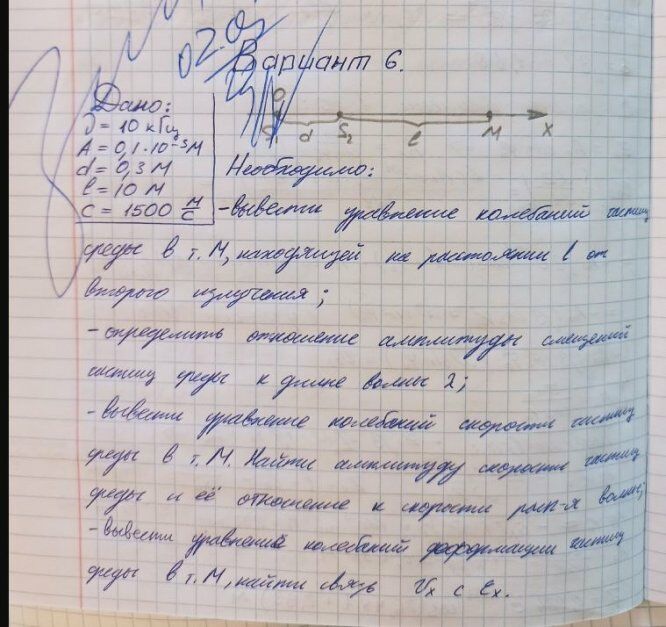 02.09
Вариант 6.
Дано:
ν = 10 кГц
A = 0,1·10⁻³ м
d = 0,3 м
l = 10 м
c = 1500 м/с
O
S₁ d S₂ l M x
Необходимо:
- вывести уравнение колебаний частиц
среды в т. М, находящейся на расстоянии l от
второго излучения;
- определить отношение амплитуды смещений
частиц среды к длине волны λ;
- вывести уравнение колебаний скорости частиц
среды в т. М. Найти амплитуду скорости частиц
среды и её отношение к скорости расп-я волны;
- вывести уравнения колебаний деформации частиц
среды в т. М, найти связь Vₓ с εₓ.